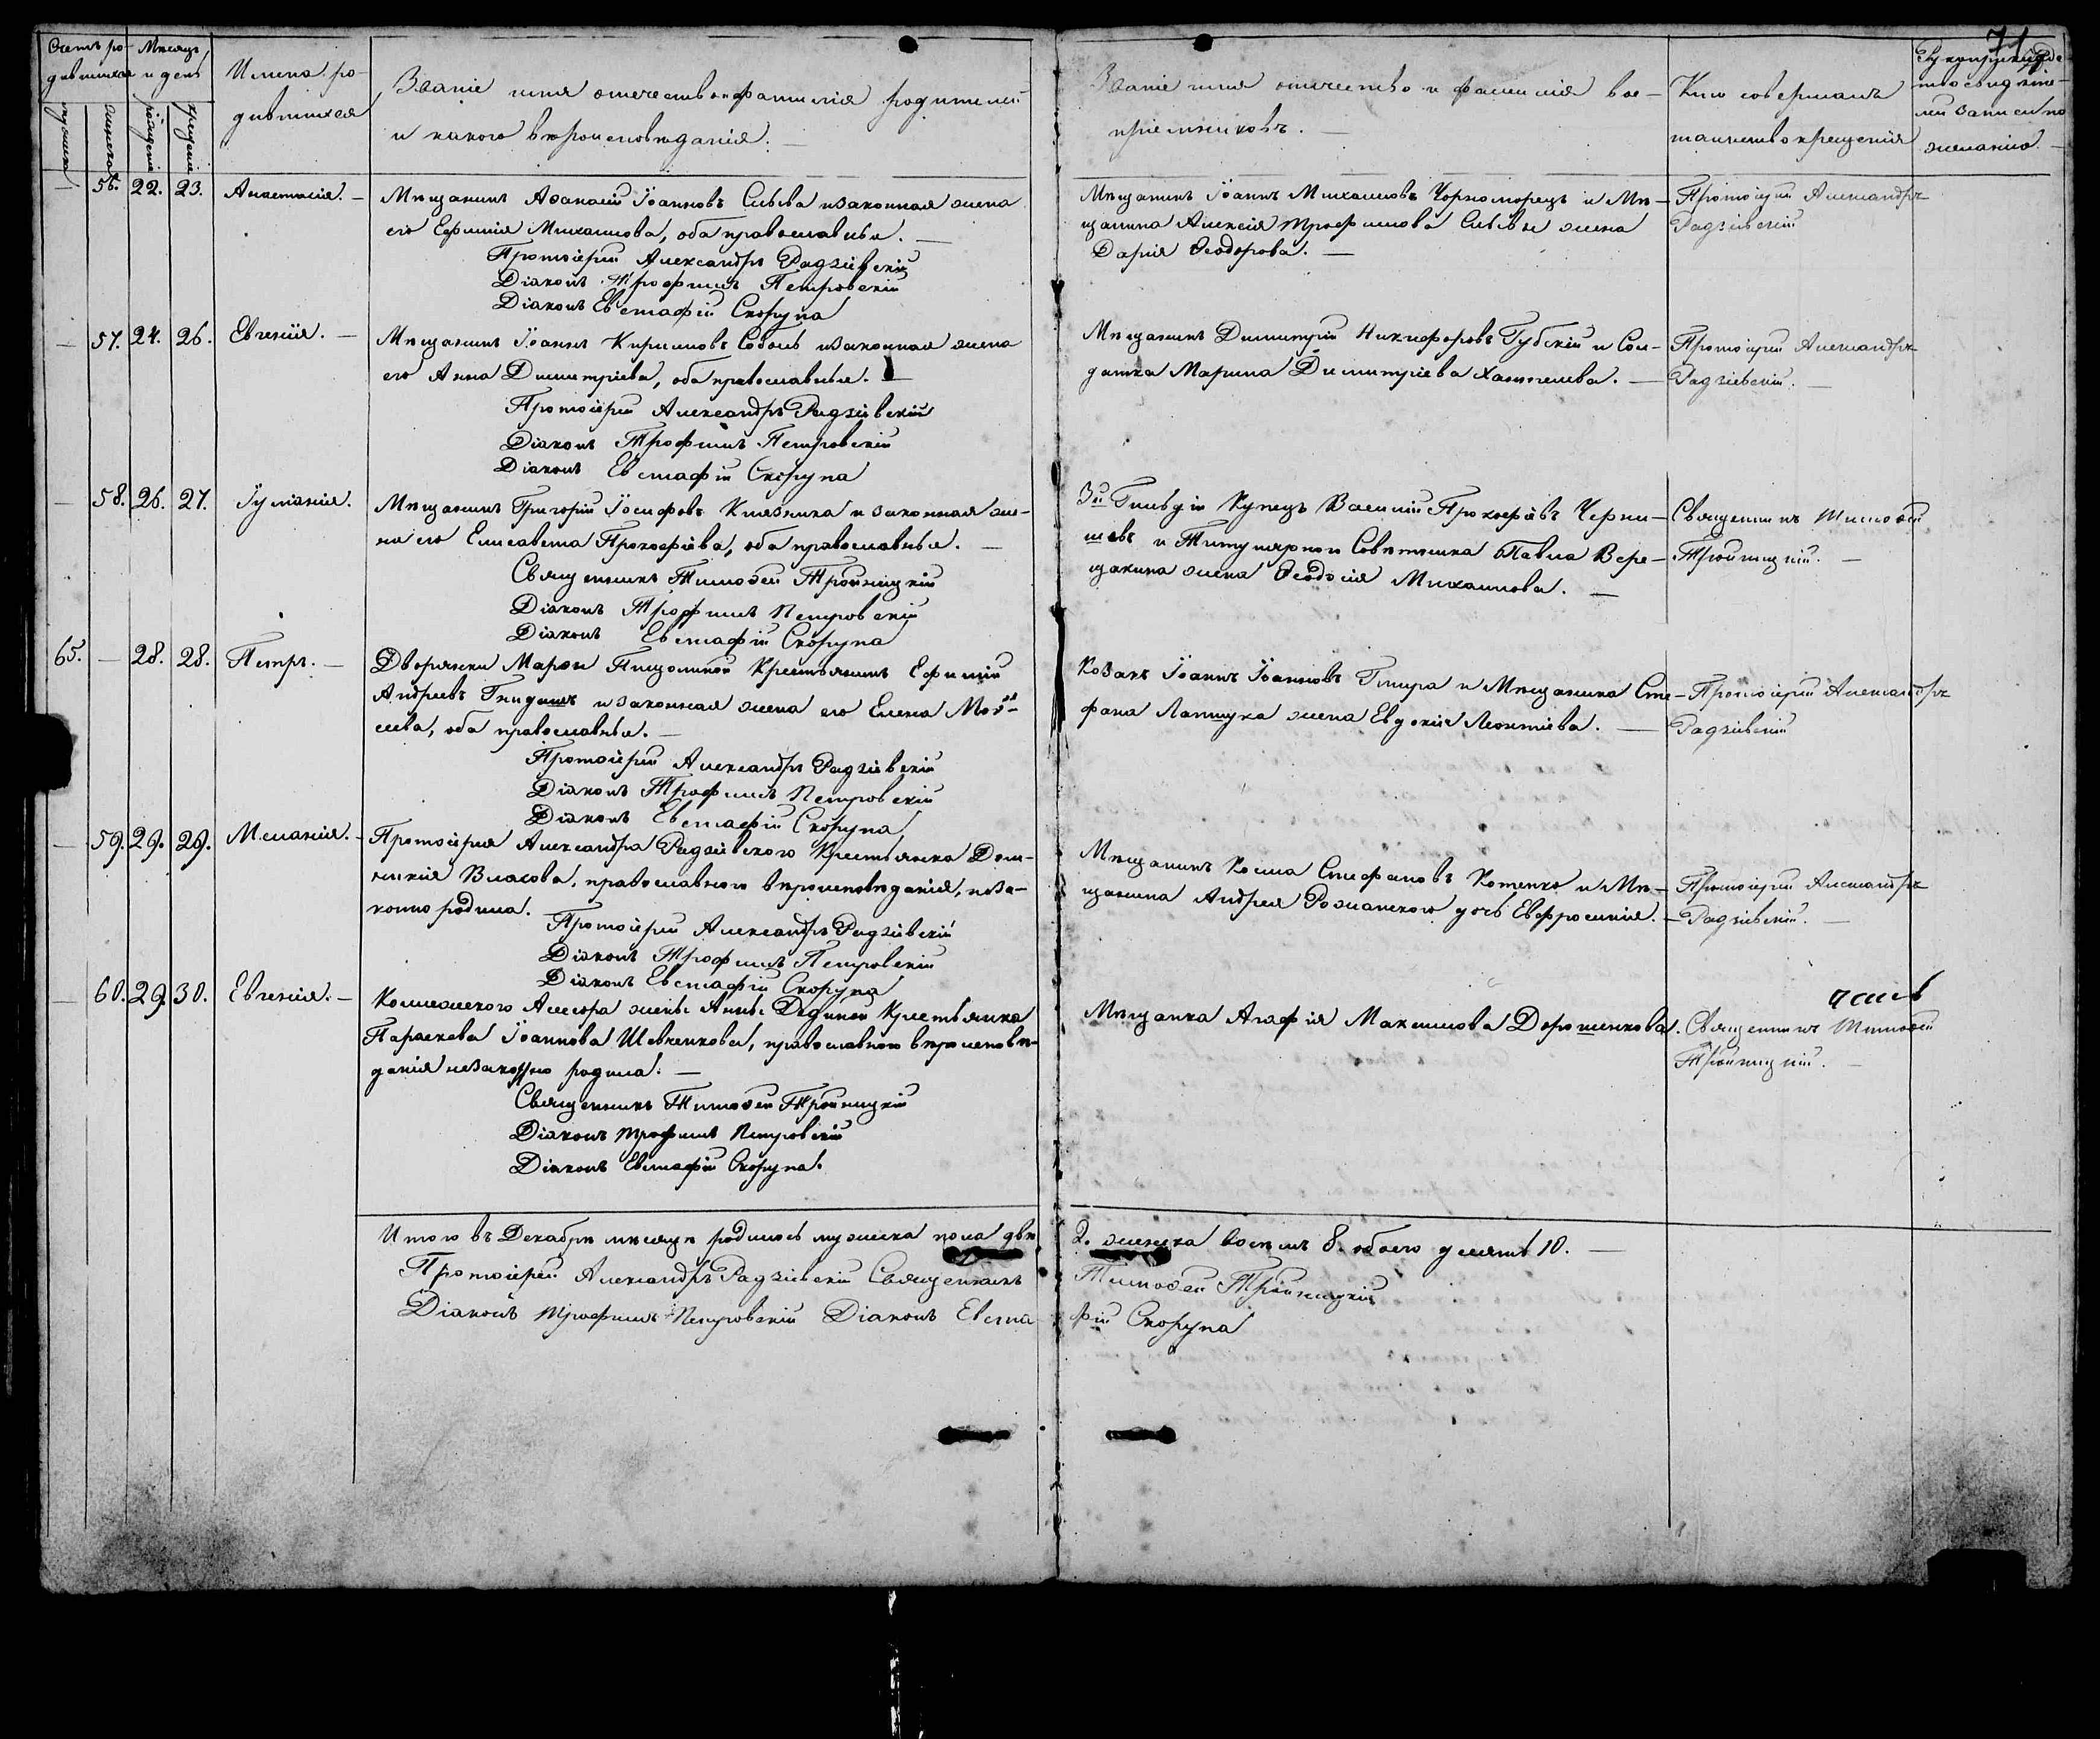 71
Счетъ ро- Мѣсяцъ
дившихся и день
мужеска женска рожденія крещенія
Имена ро-
дившихся
Званіе имя отечество и фамилія родителей
и какого вѣроисповѣданія. —
Званіе имя отечество и фамилія вос-
пріемниковъ. —
Кто совершалъ
таинство крещенія
Рукоприклад
ство свидѣте-
лей записи по
желанію. —
— 56. 22. 23. Анастасія. —
Мѣщанинъ Аѳанасій Іоанновъ Сыьва и законная жена
его Ефимія Михаилова, оба православные. —
Протоіерей Александръ Радзіевскій
Діаконъ Трофимъ Петровскій
Діаконъ Евстафій Скорупа
Мѣщанинъ Іоаннъ Михаиловъ Чорноморецъ и Мѣ-
щанина Алексія Трофимова Сыьвы жена
Дарія Ѳеодорова. —
Протоіерей Александръ
Радзіевскій
— 57. 24. 26. Евгенія. —
Мѣщанинъ Іоаннъ Кириловъ Соболь и законная жена
его Анна Димитріева, оба православные. —
Протоіерей Александръ Радзіевскій
Діаконъ Трофимъ Петровскій
Діаконъ Евстафій Скорупа
Мѣщанинъ Димитрій Никифоровъ Губскій и Сол-
датка Марина Димитріева Хаминева. —
Протоіерей Александръ
Радзіевскій. —
— 58. 26. 27. Іуліанія.
Мѣщанинъ Григорій Іосифовъ Княжика и законная же-
на его Елисавета Прокофіева, оба православные. —
Священникъ Тимоѳей Тройницкій
Діаконъ Трофимъ Петровскій
Діаконъ Евстафій Скорупа
3й Гильдіи Купецъ Василій Прокофіевъ Черны-
шевъ и Титулярного Совѣтника Павла Вере-
щакина жена Ѳеодосія Михаилова. —
Священникъ Тимоѳей
Тройницкій. —
65. — 28. 28. Петръ. —
Дворянки Маріи Пищолиной Крестьянинъ Ефимій
Андреевъ Гнидашъ и законная жена его Елена Мої-
сеева, оба православные. —
Протоіерей Александръ Радзіевскій
Діаконъ Трофимъ Петровскій
Діаконъ Евстафій Скорупа
Козакъ Іоаннъ Іоанновъ Гмыра и Мѣщанина Сте-
фана Лапшука жена Евдокія Леонтіева. —
Протоіерей Александръ
Радзіевскій
— 59. 29. 29. Меланія. —
Протоіерея Александра Радзіевского Крестьянка Дом-
никія Власова, православного вѣроисповѣданія, неза-
конно родила.
Протоіерей Александръ Радзіевскій
Діаконъ Трофимъ Петровскій
Діаконъ Евстафій Скорупа
Мѣщанинъ Косма Стефановъ Котенко и Мѣ-
щанина Андрея Рожанского дочь Евфросинія. —
Протоіерей Александръ
Радзіевскій. —
— 60. 29. 30. Евгенія. —
Колежского Асесора жены Анны Дединой Крестьянка
Параскева Іоаннова Шевченкова, православного вѣроисповѣ-
данія незаконно родила. —
Священникъ Тимоѳей Тройницкій
Діаконъ Трофимъ Петровскій
Діаконъ Евстафій Скорупа.
Мѣщанка Агафія Максимова Дорошенкова.
Священникъ Тимоѳей
Тройницкій. —
Итого въ Декабрѣ мѣсяцѣ родилось мужеска пола два 2. женска восемь 8. обоего десять 10. —
Протоіерей Александръ Радзіевскій Священникъ Тимоѳей Тройницкій
Діаконъ Трофимъ Петровскій Діаконъ Евстафій Скорупа